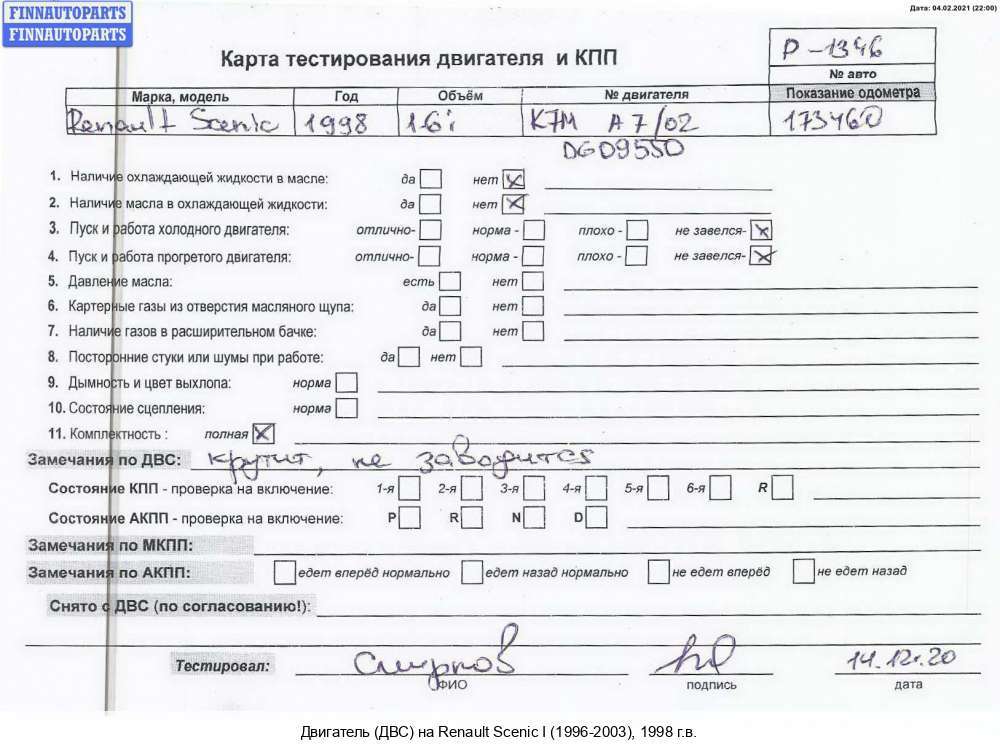 Дата: 04.02.2021 (22:00)
FINNAUTOPARTS
FINNAUTOPARTS
Карта тестирования двигателя и КПП
P-1346
№ авто
Марка, модель Год Объём № двигателя Показание одометра
Renault Scenic 1998 1.6i K7M A7/02 173460
DG09550
1. Наличие охлаждающей жидкости в масле: да нет
2. Наличие масла в охлаждающей жидкости: да нет
3. Пуск и работа холодного двигателя: отлично- норма - плохо - не завелся-
4. Пуск и работа прогретого двигателя: отлично- норма - плохо - не завелся-
5. Давление масла: есть нет
6. Картерные газы из отверстия масляного щупа: да нет
7. Наличие газов в расширительном бачке: да нет
8. Посторонние стуки или шумы при работе: да нет
9. Дымность и цвет выхлопа: норма
10. Состояние сцепления: норма
11. Комплектность : полная
Замечания по ДВС: крутит, не заводится
Состояние КПП - проверка на включение: 1-я 2-я 3-я 4-я 5-я 6-я R
Состояние АКПП - проверка на включение: P R N D
Замечания по МКПП:
Замечания по АКПП: едет вперёд нормально едет назад нормально не едет вперёд не едет назад
Снято с ДВС (по согласованию!):
Тестировал: Смирнов 14.12.20
ФИО подпись дата
Двигатель (ДВС) на Renault Scenic I (1996-2003), 1998 г.в.